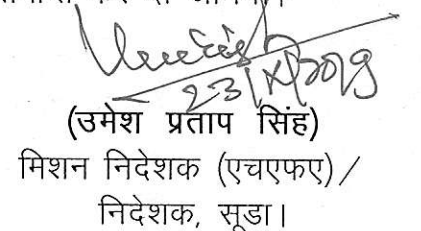 23/X/2019
(उमेश प्रताप सिंह)
मिशन निदेशक (एचएफए)/
निदेशक, सूडा।